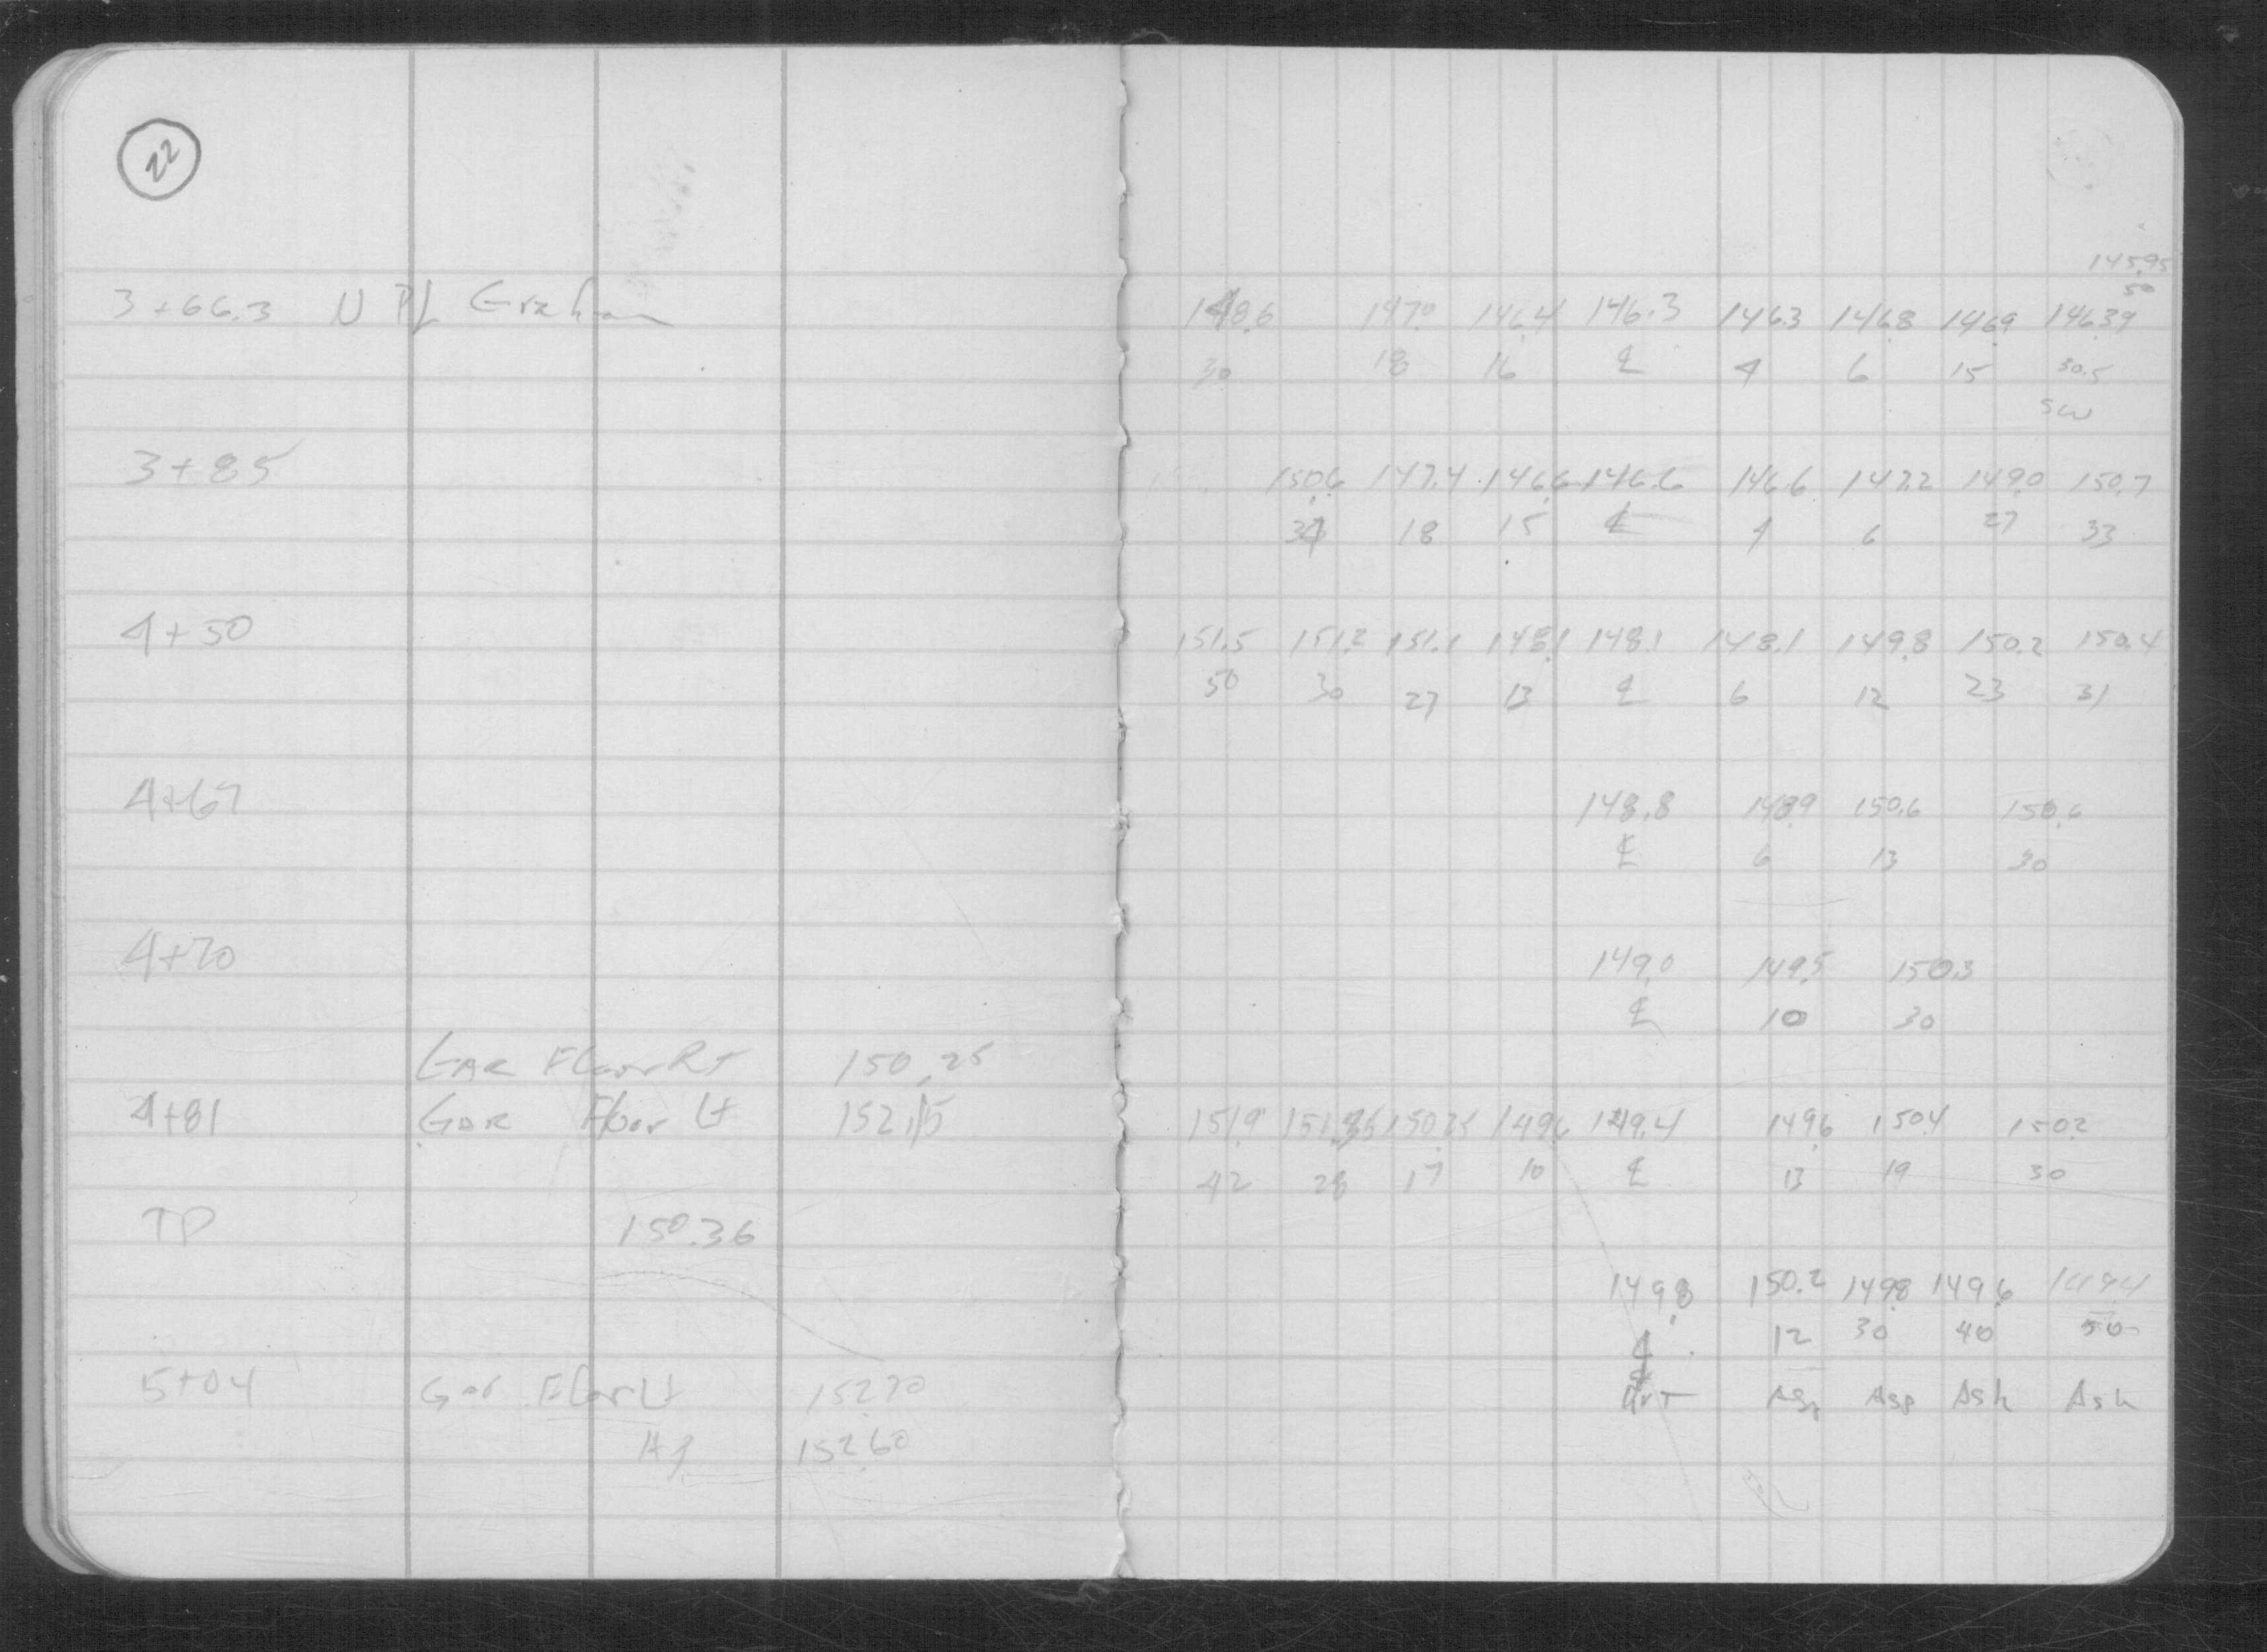 22
145.95
50
3+66.3 N PL Graham 148.6 147.0 146.4 146.3 146.3 146.8 146.9 146.39
30 18 16 ℄ 4 6 15 30.5
SW
3+85 150.6 147.4 146.6 146.6 146.6 147.2 149.0 150.7
34 18 15 ℄ 4 6 27 33
4+50 151.5 151.2 151.1 148.1 148.1 148.1 149.8 150.2 150.4
50 30 27 13 ℄ 6 12 23 31
4+67 148.8 148.9 150.6 150.6
℄ 6 13 30
4+70 149.0 149.5 150.3
℄ 10 30
GAR Floor Rt 150.25
4+81 GAR Floor Lt 152.15 151.9 150.25 149.6 149.4 149.6 150.4 150.2
42 28 17 10 ℄ 13 19 30
TP 150.36
149.8 150.2 149.8 149.6 149.4
℄ 12 30 40 50
5+04 Gar Floor Lt 152.70 Asp Asp Ash Ash
152.60